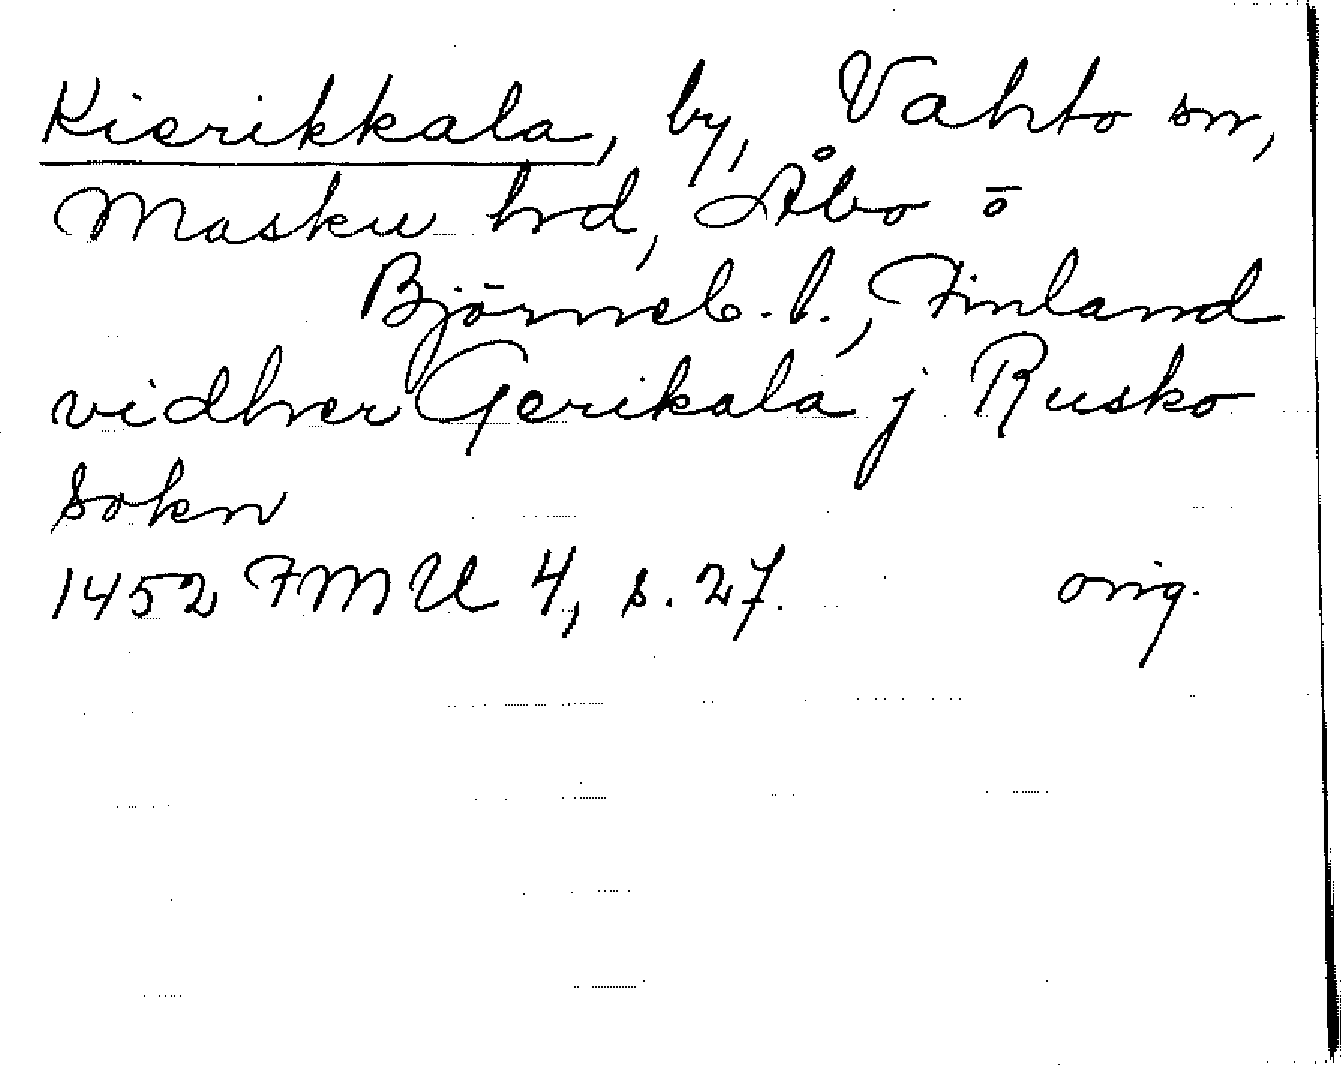 Kierikkala, by, Vahto sn,
Masku hd, Åbo o
Björneb. l., Finland
vidher Gerikala j Rusko
Sokn
1452 FMU 4, s. 27. orig.